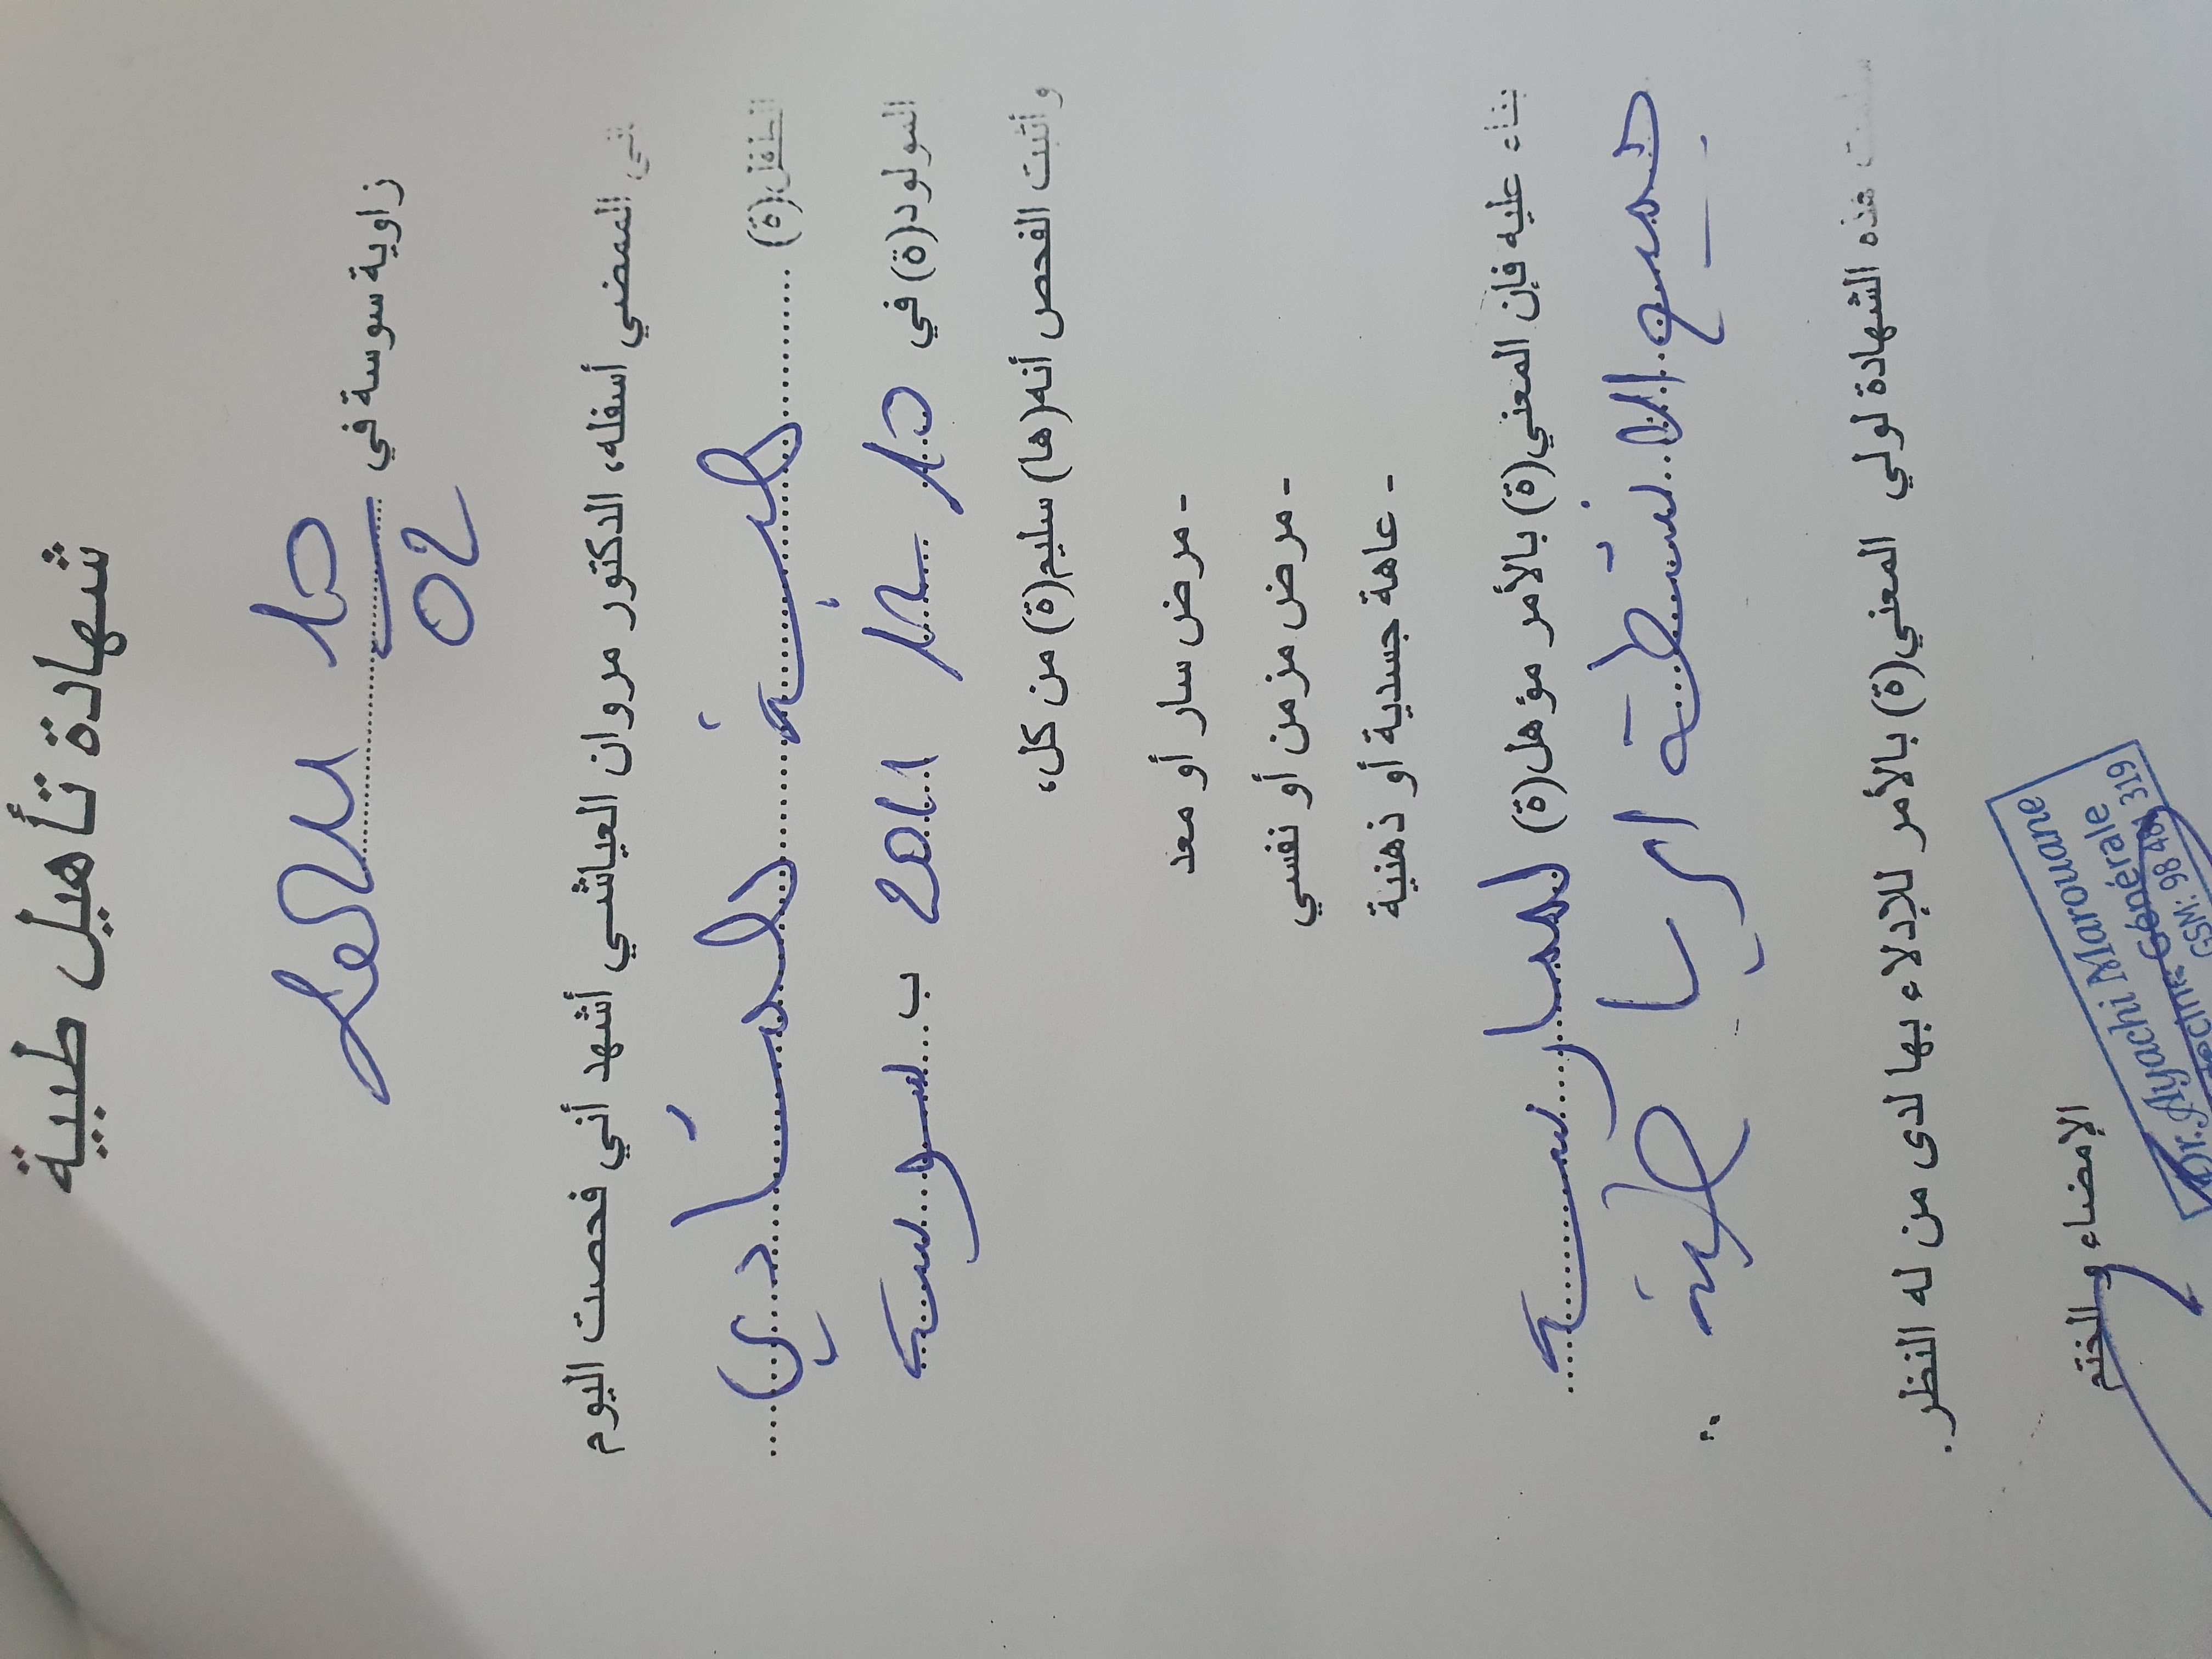 شهادة تأهيل طبية
زاوية سوسة في 10
02
الممضي أسفله، الدكتور مروان العياشي أشهد أني فحصت اليوم
الطفل(ة)
المولود(ة) في 10 12 2011 ب سوسة
و أثبت الفحص أنه(ها) سليم(ة) من كل،
- مرض سار أو معد
- مرض مزمن أو نفسي
- عاهة جسدية أو ذهنية
بناء عليه فإن المعني(ة) بالأمر مؤهل(ة) لممارسة
جميع الانشطة الرياضية
هذه الشهادة لولي المعني(ة) بالأمر للإدلاء بها لدى من له النظر.
الإمضاء و الختم
Dr. Ayachi Marouane
Médecine Générale
GSM: 98 481 319